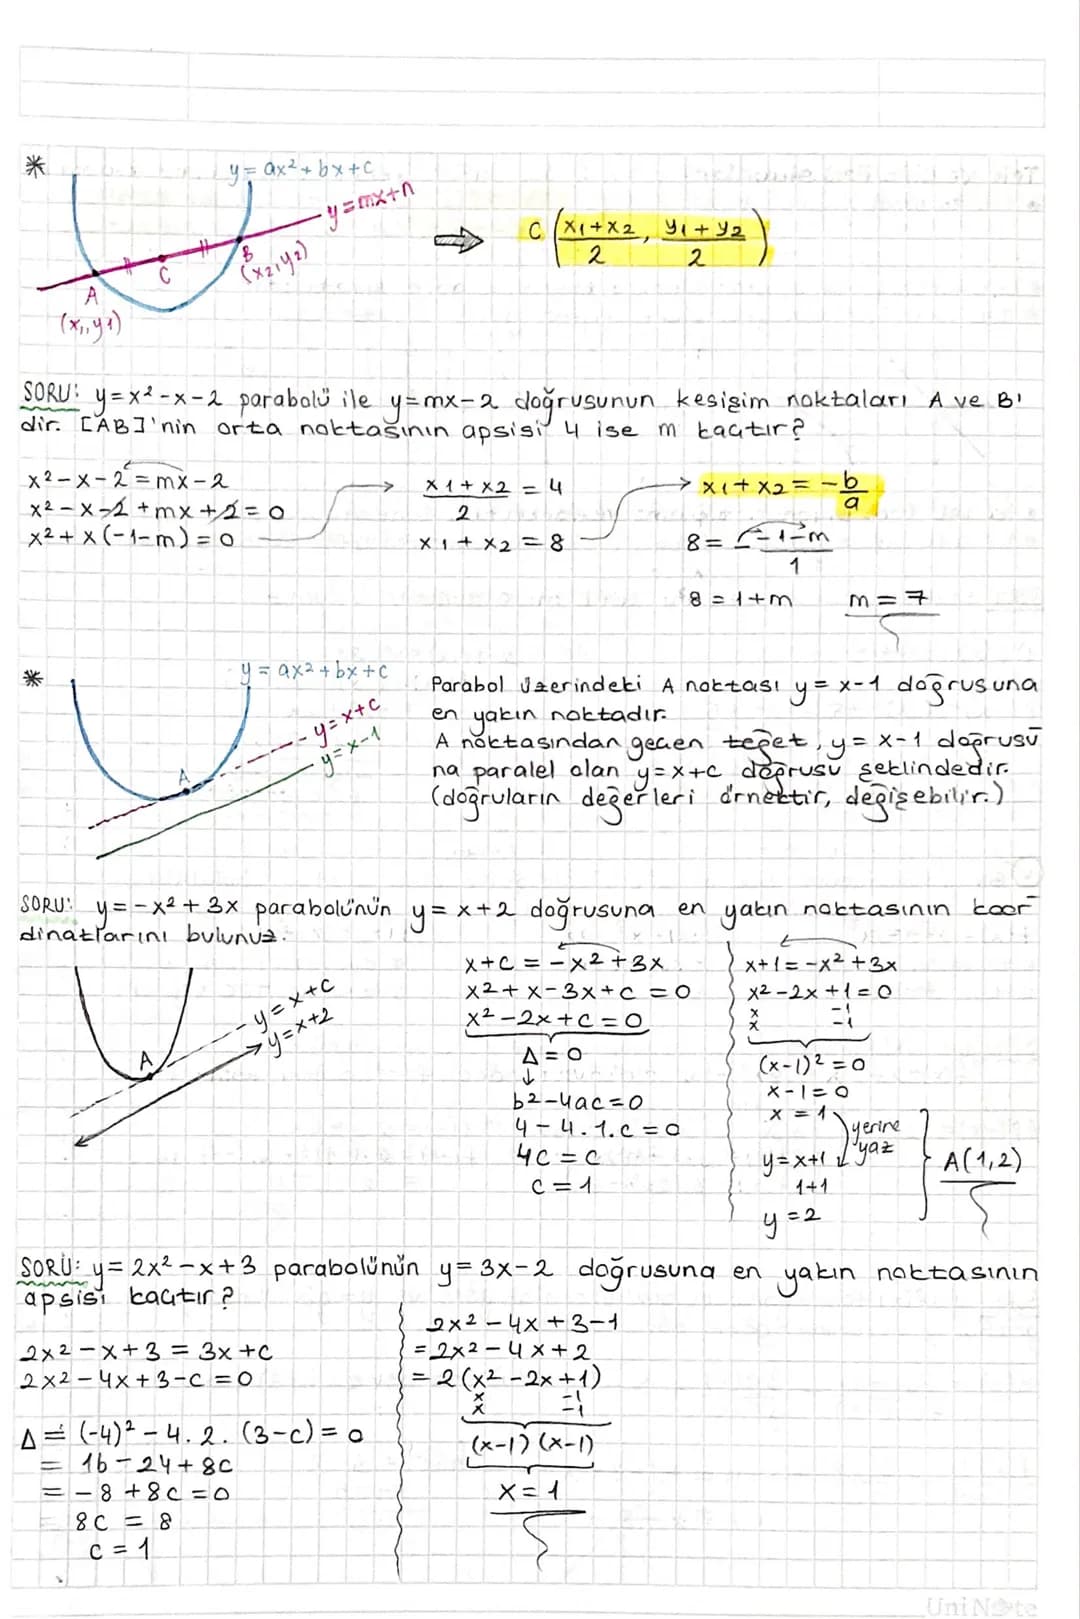 * y = ax² + bx + c
y = mx + n
A
(x₁, y₁)
C
B
(x₂, y₂)
⇒ C (x₁ + x₂ / 2, y₁ + y₂ / 2)
SORU: y = x² - x - 2 parabolü ile y = mx - 2 doğrusunun kesişim noktaları A ve B'
dir. [AB]'nin orta noktasının apsisi 4 ise m kaçtır?
x² - x - 2 = mx - 2
x² - x - 2 + mx + 2 = 0
x² + x(-1-m) = 0
x₁ + x₂ / 2 = 4
x₁ + x₂ = 8
x₁ + x₂ = -b/a
8 = -(-1-m) / 1
8 = 1 + m
m = 7
* y = ax² + bx + c
y = x + c
y = x - 1
A
Parabol üzerindeki A noktası y = x-1 doğrusuna
en yakın noktadır.
A noktasından geçen teğet, y = x-1 doğrusu
na paralel olan y = x+c doğrusu şeklindedir.
(doğruların değerleri örnektir, değişebilir.)
SORU: y = -x² + 3x parabolünün y = x+2 doğrusuna en yakın noktasının koor-
dinatlarını bulunuz.
y = x + c
y = x + 2
A
x + c = -x² + 3x
x² + x - 3x + c = 0
x² - 2x + c = 0
Δ = 0
↓
b² - 4ac = 0
4 - 4.1.c = 0
4c = c
c = 1
x + 1 = -x² + 3x
x² - 2x + 1 = 0
x -1
x -1
(x-1)² = 0
x - 1 = 0
x = 1
yerine
yaz
y = x+1
1+1
y = 2
A(1,2)
SORU: y = 2x² - x + 3 parabolünün y = 3x - 2 doğrusuna en yakın noktasının
apsisi kaçtır?
2x² - x + 3 = 3x + c
2x² - 4x + 3 - c = 0
Δ = (-4)² - 4.2.(3-c) = 0
= 16 - 24 + 8c
= -8 + 8c = 0
8c = 8
c = 1
2x² - 4x + 3 - 1
= 2x² - 4x + 2
= 2(x² - 2x + 1)
x -1
x -1
(x-1) (x-1)
x = 1
UniNote